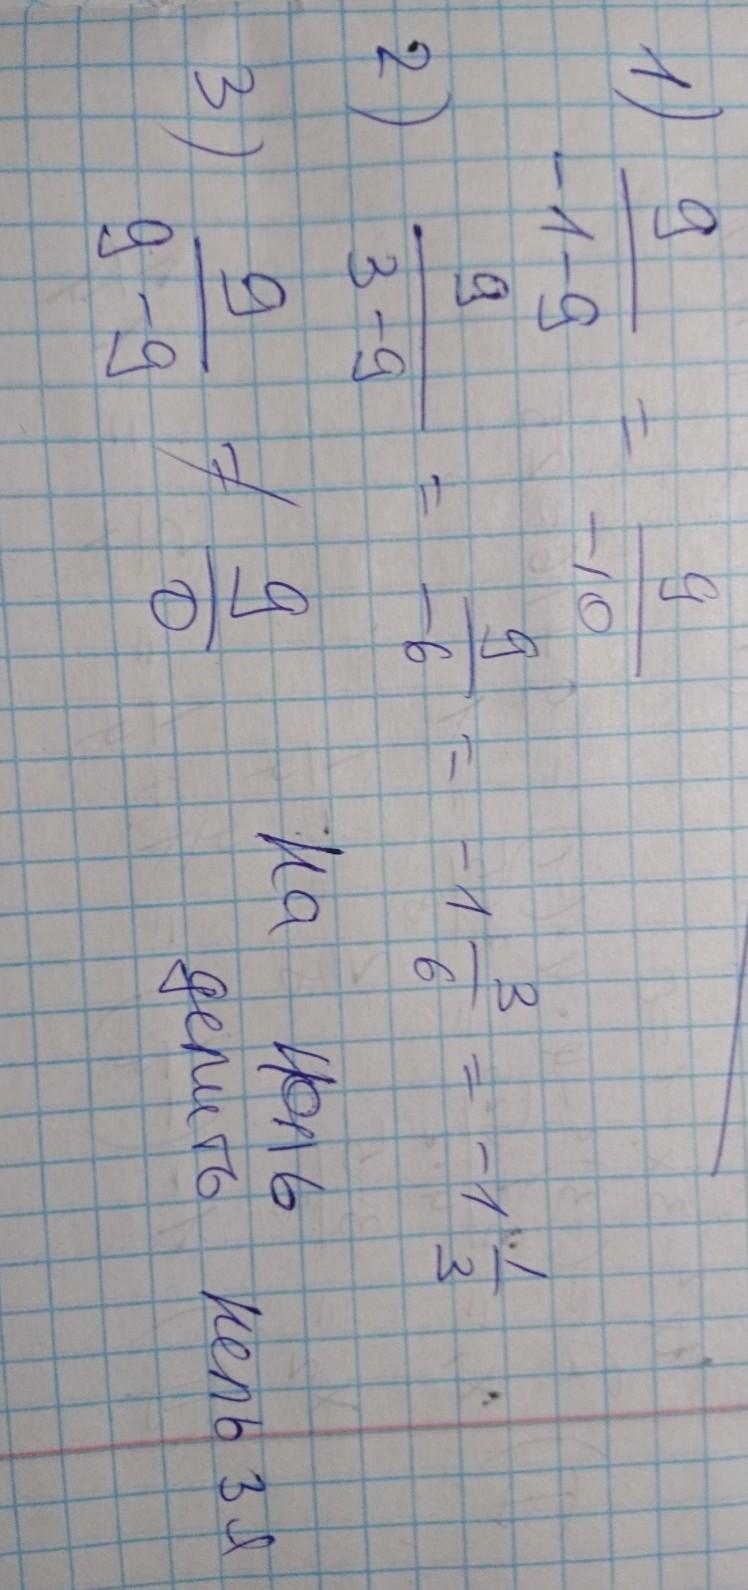 1) 9/(-1-9) = 9/(-10)
2) 9/(3-9) = 9/(-6) = -1 3/6 = -1 1/3
3) 9/(9-9) ≠ 9/0 На ноль
делить нельзя